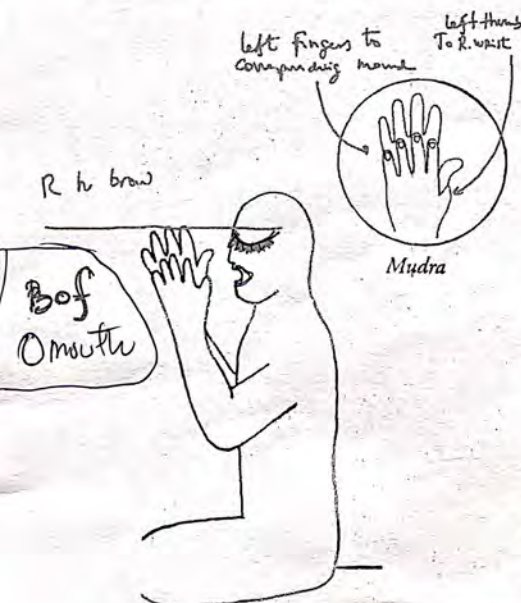 left fingers to
corresponding mound
left thumb
To R. wrist
R to brow
Mudra
B of
O mouth